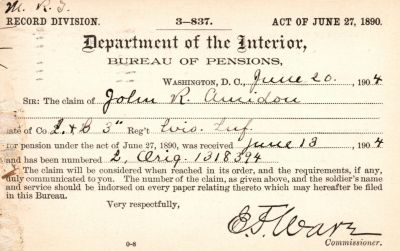 M. R. J.
RECORD DIVISION. 3—837. ACT OF JUNE 27, 1890.
Department of the Interior,
BUREAU OF PENSIONS,
WASHINGTON, D. C., June 20, 1904
SIR: The claim of John R. Amidon
late of Co 3" Reg't Wis. Inf.
for pension under the act of June 27, 1890, was received June 13 1904
and has been numbered 2, Orig. 1318394
The claim will be considered when reached in its order, and the requirements, if any,
duly communicated to you. The number of the claim, as given above, and the soldier's name
and service should be indorsed on every paper relating thereto which may hereafter be filed
in this Bureau.
Very respectfully,
E F Ware
Commissioner.
0-8